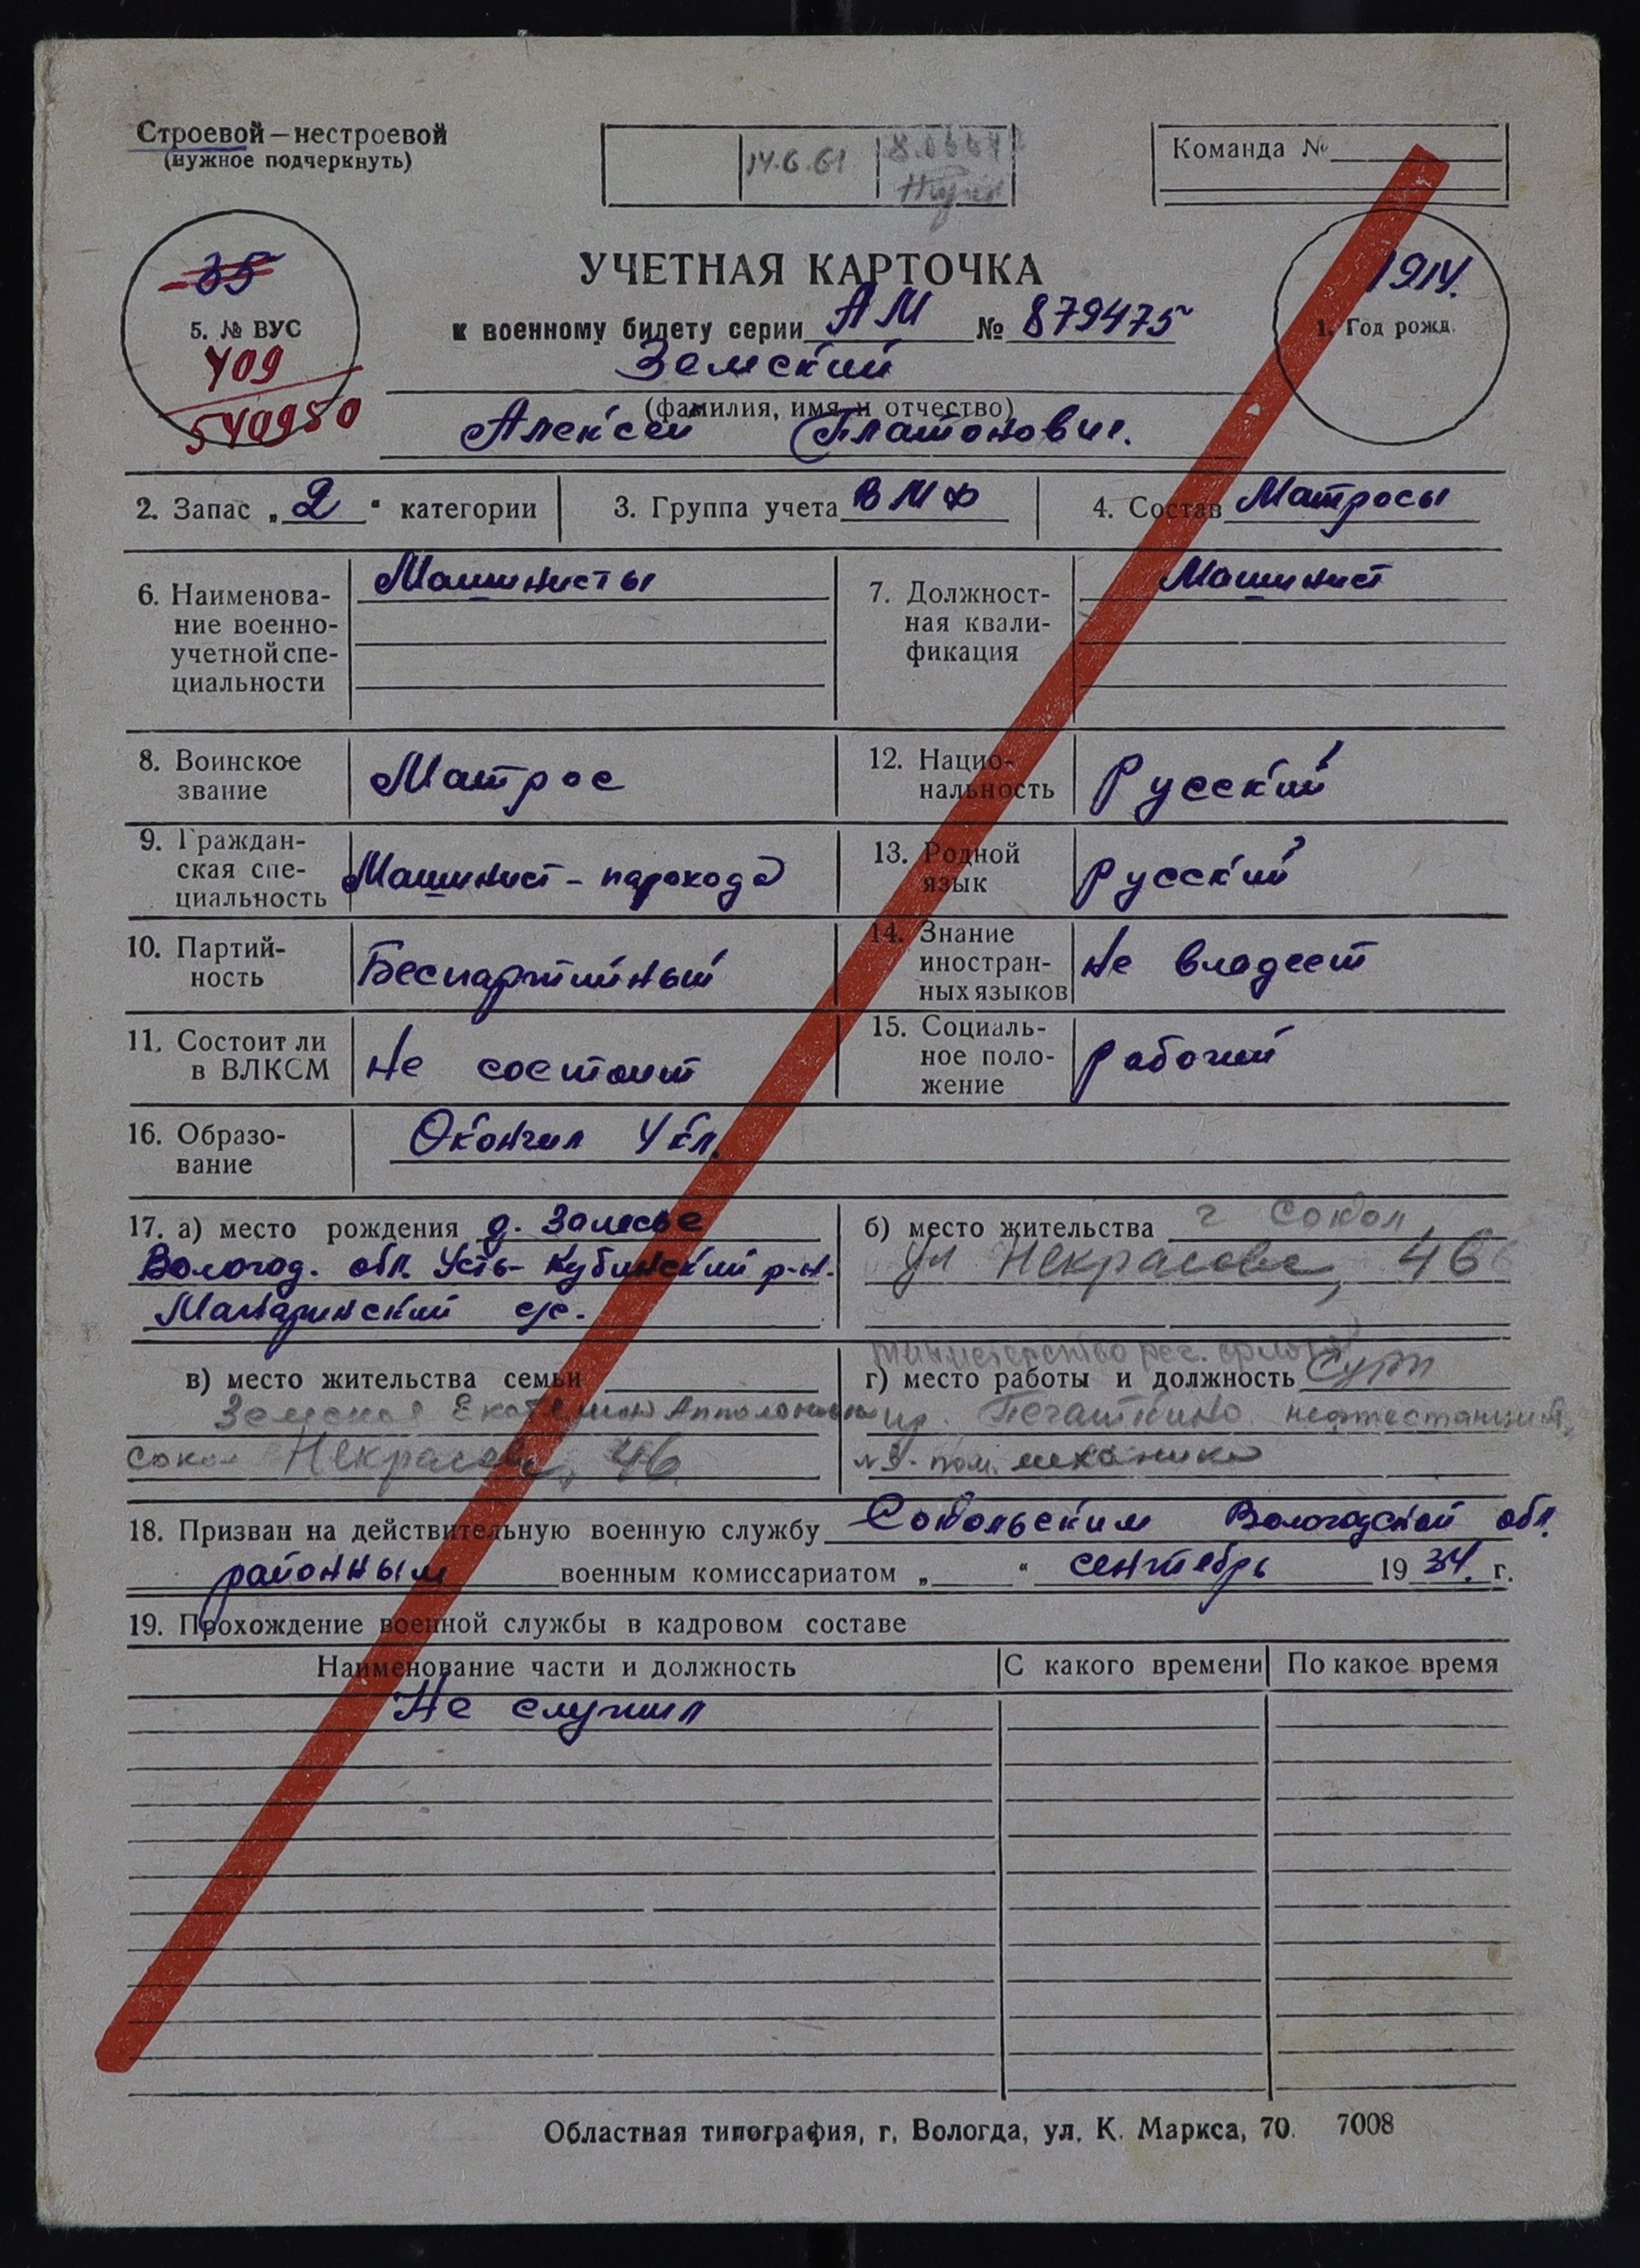 Строевой — нестроевой
(нужное подчеркнуть)
14.6.61
Команда №
35
5. № ВУС
409
540950
УЧЕТНАЯ КАРТОЧКА
к военному билету серии АМ № 879475
Земский
(фамилия, имя и отчество)
Алексей Платонович.
1914.
1. Год рожд.
2. Запас „2“ категории
3. Группа учета ВМФ
4. Состав Матросы
6. Наименова-
ние военно-
учетной спе-
циальности
Машинисты
7. Должност-
ная квали-
фикация
Машинист
8. Воинское
звание
Матрос
12. Нацио-
нальность
Русский
9. Граждан-
ская спе-
циальность
Машинист - парохода
13. Родной
язык
Русский
10. Партий-
ность
Беспартийный
14. Знание
иностран-
ных языков
Не владеет
11. Состоит ли
в ВЛКСМ
Не состоит
15. Социаль-
ное поло-
жение
рабочий
16. Образо-
вание
Окончил 4 кл.
17. а) место рождения д. Залесье
Вологод. обл. Усть-Кубинский р-н.
с/с.
б) место жительства г Сокол
ул Некрасова, 46
в) место жительства семьи
Земская Екатерина
Сокол Некрасова, 46
министерство реч. флота
г) место работы и должность
Печаткино
пом. механика
18. Призван на действительную военную службу Сокольским Вологодской обл.
районным военным комиссариатом „ “ сентябрь 1934. г.
19. Прохождение военной службы в кадровом составе
Наименование части и должность
С какого времени
По какое время
Не служил
Областная типография, г. Вологда, ул. К. Маркса, 70. 7008